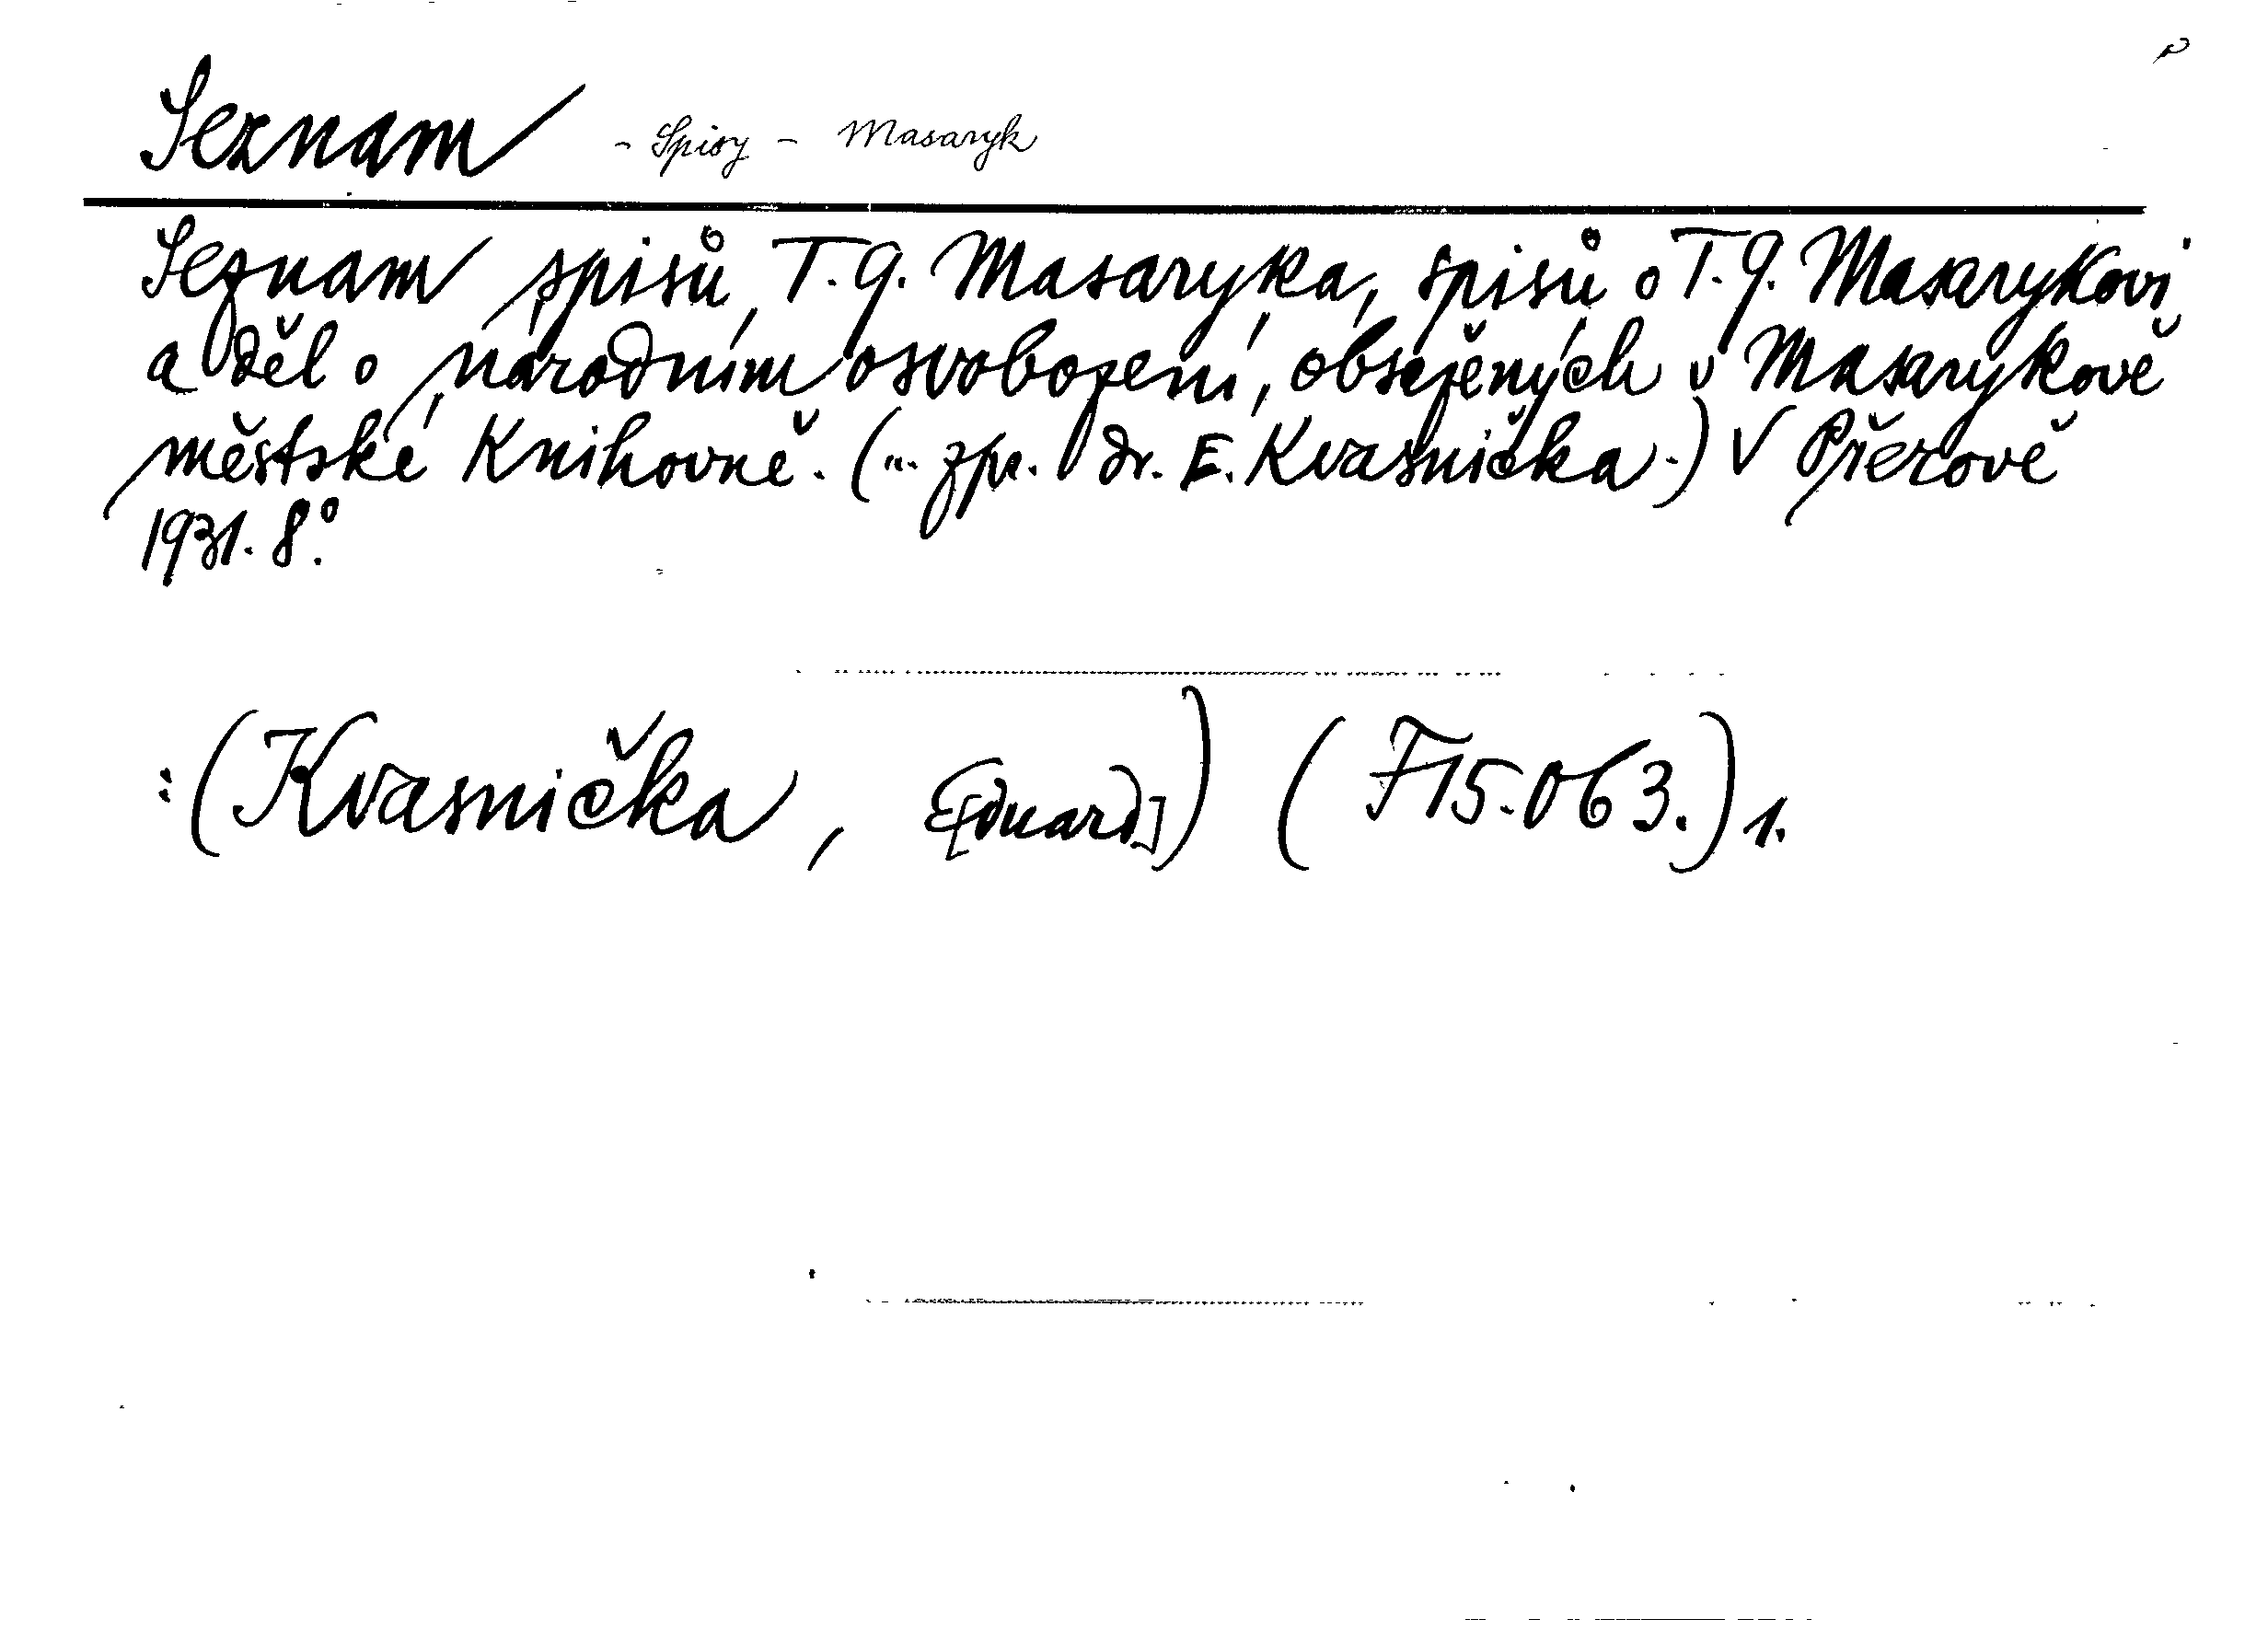 Seznam - Spisy - Masaryk
Seznam spisů T. G. Masaryka, spisů o T. G. Masarykovi
a děl o národním osvobození, obsažených v Masarykově
městské knihovně. (... zpr. dr. E. Kvasnička.) V Přerově
1931. 8°.
:(Kvasnička, E[duard]) (F 15.063.) 1.